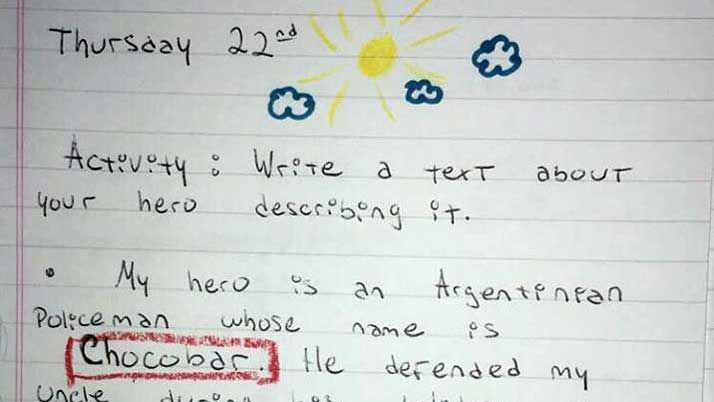 Thursday 22nd
Activity: Write a text about
your hero describing it.
• My hero is an Argentinian
Policeman whose name is
Chocobar. He defended my
Uncle during his